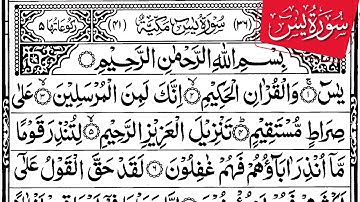 سُوْرَةُ يٰسٓ
(٣٦) سُوْرَةُ يٰسٓ مَكِّيَّةٌ (٤١) رُكُوْعَاتُهَا ٥
بِسْمِ اللّٰهِ الرَّحْمٰنِ الرَّحِيْمِ
يٰسٓ ۝١ وَالْقُرْاٰنِ الْحَكِيْمِ ۝٢ اِنَّكَ لَمِنَ الْمُرْسَلِيْنَ ۝٣ عَلٰى
صِرَاطٍ مُّسْتَقِيْمٍ ۝٤ تَنْزِيْلَ الْعَزِيْزِ الرَّحِيْمِ ۝٥ لِتُنْذِرَ قَوْمًا
مَّاۤ اُنْذِرَ اٰبَآؤُهُمْ فَهُمْ غٰفِلُوْنَ ۝٦ لَقَدْ حَقَّ الْقَوْلُ عَلٰٓى